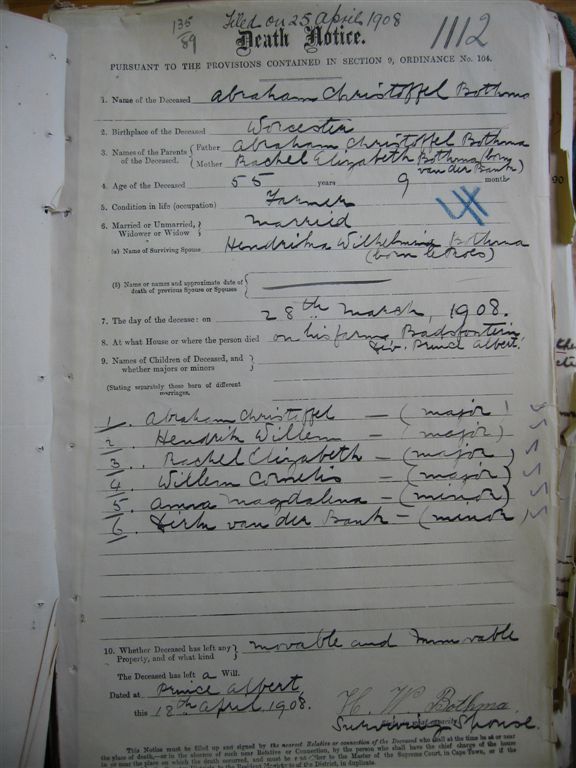 135/89
Filed on 25 April 1908
1112
Death Notice.
PURSUANT TO THE PROVISIONS CONTAINED IN SECTION 9, ORDINANCE No. 104.
1. Name of the Deceased Abraham Christoffel Bothma
2. Birthplace of the Deceased Worcester
3. Names of the Parents of the Deceased. { Father Abraham Christoffel Bothma
Mother Rachel Elizabeth Bothma (born van der Bank)
4. Age of the Deceased 55 years 9 month
5. Condition in life (occupation) Farmer
6. Married or Unmarried, Widower or Widow } Married
(a) Name of Surviving Spouse Hendrika Wilhelmina Bothma
(born le Roes)
(b) Name or names and approximate date of death of previous Spouse or Spouses
7. The day of the decease: on 28th March, 1908.
8. At what House or where the person died on his farm Badsfontein
Div. Prince Albert.
9. Names of Children of Deceased, and whether majors or minors }
(Stating separately those born of different marriages.
1. Abraham Christoffel — (major)
2. Hendrik Willem — (major)
3. Rachel Elizabeth — (major)
4. Willem Cornelis — (major)
5. Anna Magdalena — (minor)
6. Dirk van der Bank — (minor)
10. Whether Deceased has left any Property, and of what kind } movable and immovable
The Deceased has left a Will.
Dated at Prince Albert
this 18th April 1908.
H. W. Bothma
Surviving Spouse.
This Notice must be filled up and signed by the nearest Relative or connection of the Deceased who shall at the time be at or near
the place of death,—or in the absence of such near Relative or Connection, by the person who shall have the chief charge of the house
in or near the place on which the death occurred, and must be sent either to the Master of the Supreme Court, in Cape Town, or if the
of the District, in duplicate.